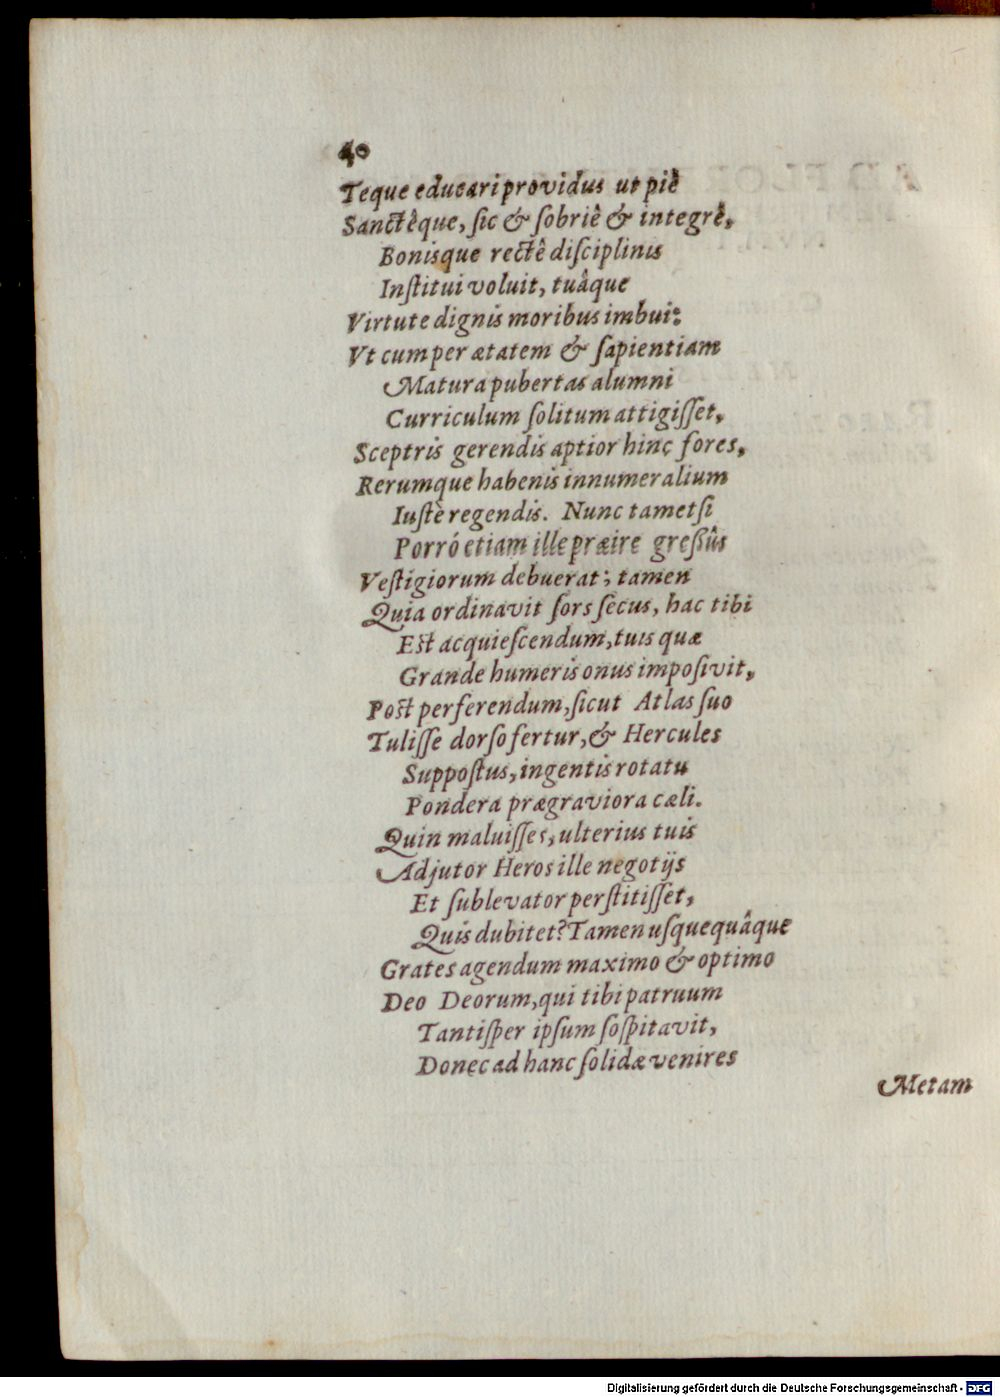 40
Teque educari providus ut piè
Sanctêque, sic & sobriè & integrè,
Bonisque rectê disciplinis
Institui voluit, tuâque
Virtute dignis moribus imbui:
Vt cum per ætatem & sapientiam
Matura pubertas alumni
Curriculum solitum attigisset,
Sceptris gerendis aptior hinc fores,
Rerumque habenis innumeralium
Iustè regendis. Nunc tametsi
Porró etiam ille præire gressûs
Vestigiorum debuerat; tamen
Quia ordinavit sors secus, hac tibi
Est acquiescendum, tuis quæ
Grande humeris onus imposivit,
Post perferendum, sicut Atlas suo
Tulisse dorso fertur, & Hercules
Suppostus, ingentis rotatu
Pondera prægraviora cæli.
Quin maluisses, ulterius tuis
Adjutor Heros ille negotijs
Et sublevator perstitisset,
Quis dubitet? Tamen usquequâque
Grates agendum maximo & optimo
Deo Deorum, qui tibi patruum
Tantisper ipsum sospitavit,
Donec ad hanc solidæ venires
Metam
Digitalisierung gefördert durch die Deutsche Forschungsgemeinschaft - DFG